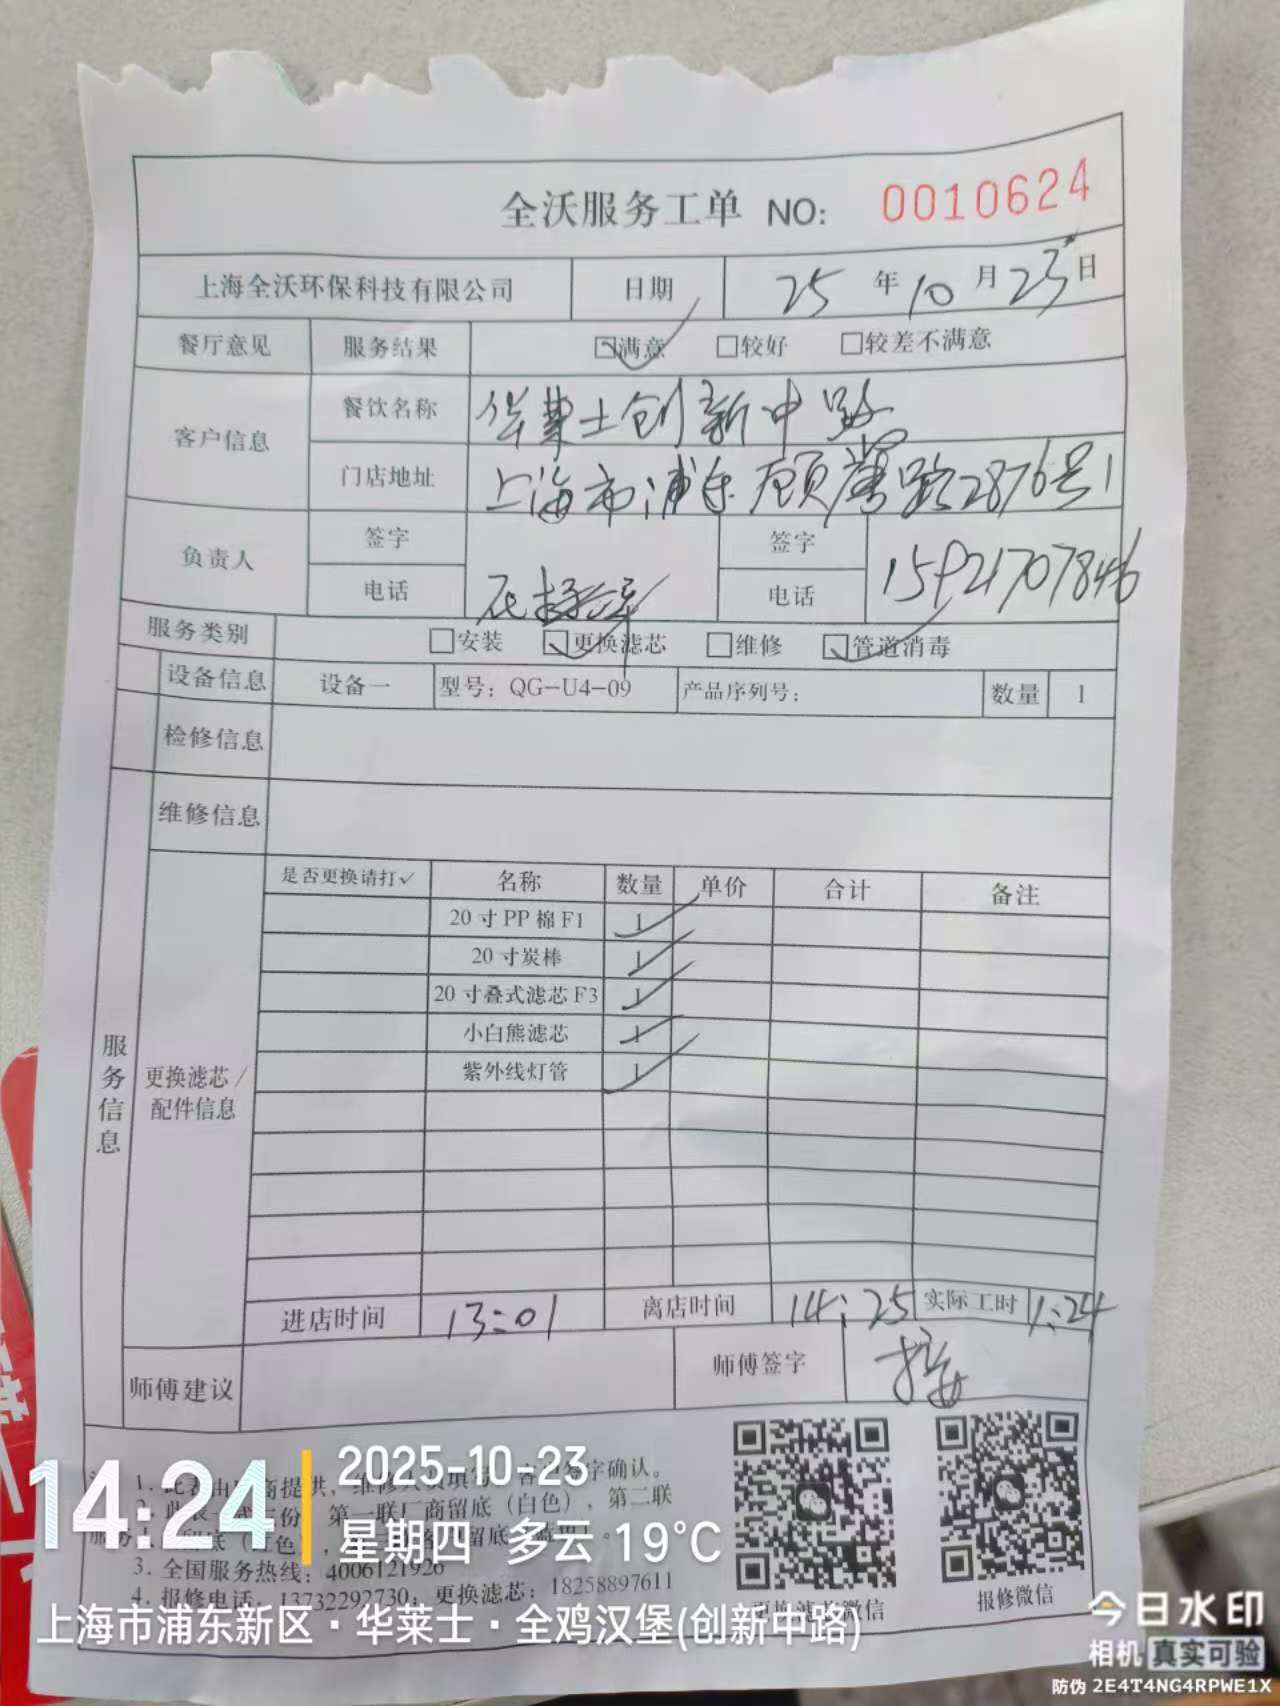 全沃服务工单 NO: 0010624
上海全沃环保科技有限公司 日期 25 年 10 月 23 日
餐厅意见 服务结果 ☑满意 □较好 □较差不满意
客户信息 餐饮名称 华莱士创新中路
门店地址 上海市浦东顾 路2876号1
负责人 签字 签字
电话 电话 15921707846
服务类别 □安装 ☑更换滤芯 □维修 ☑管道消毒
设备信息 设备一 型号: QG-U4-09 产品序列号: 数量 1
检修信息
维修信息
服务信息
更换滤芯/配件信息
是否更换请打✓ 名称 数量 单价 合计 备注
20寸PP棉F1 1 ✓
20寸炭棒 1 ✓
20寸叠式滤芯F3 1 ✓
小白熊滤芯 1 ✓
紫外线灯管 1 ✓
进店时间 13:01 离店时间 14:25 实际工时 1:24
师傅建议 师傅签字
1. 此 由 商提供, 维修人员填写, 客 签字确认。
份 第一联厂商留底(白色), 第二联
留底
3. 全国服务热线: 4006121926
4. 报修电话: 13732292730; 更换滤芯: 18258897611
更换滤芯微信 报修微信
14:24
2025-10-23
星期四 多云 19℃
上海市浦东新区·华莱士·全鸡汉堡(创新中路)
今日水印
相机 真实可验
防伪 2E4T4NG4RPWE1X